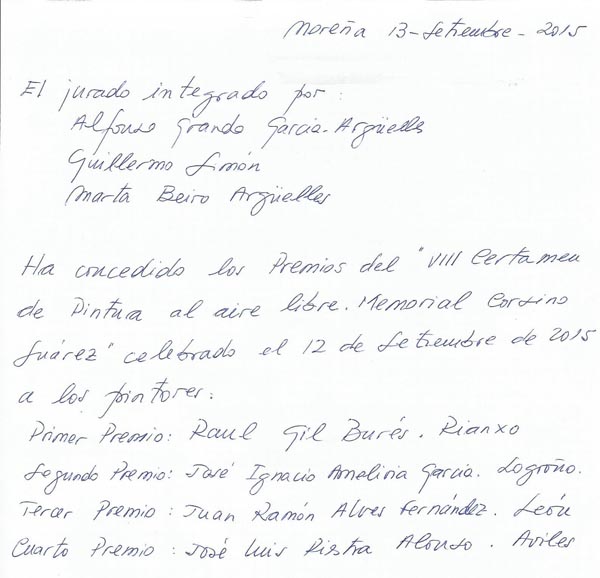 Noreña 13-Setiembre-2015
El jurado integrado por:
Alfonso Grando Garcia-Argüelles
Guillermo Simón
Marta Beiro Argüelles
Ha concedido los Premios del "VIII Certamen
de Pintura al aire libre. Memorial Corsino
Suárez" celebrado el 12 de Setiembre de 2015
a los pintores:
Primer Premio: Raul Gil Burés. Rianxo
Segundo Premio: José Ignacio Amelivia Garcia. Logroño.
Tercer Premio: Juan Ramón Alves Fernández. León
Cuarto Premio: José Luis Riestra Alonso. Aviles